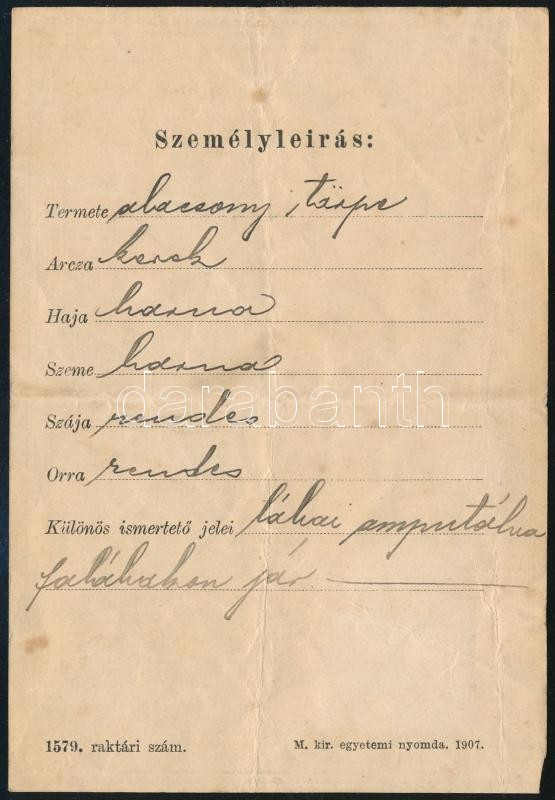 Személyleirás:
Termete alacsony, törpe
Arcza kerek
Haja barna
Szeme barna
darabanth
Szája rendes
Orra rendes
Különös ismertető jelei lábai amputálva
falábakon jár
1579. raktári szám. M. kir. egyetemi nyomda. 1907.